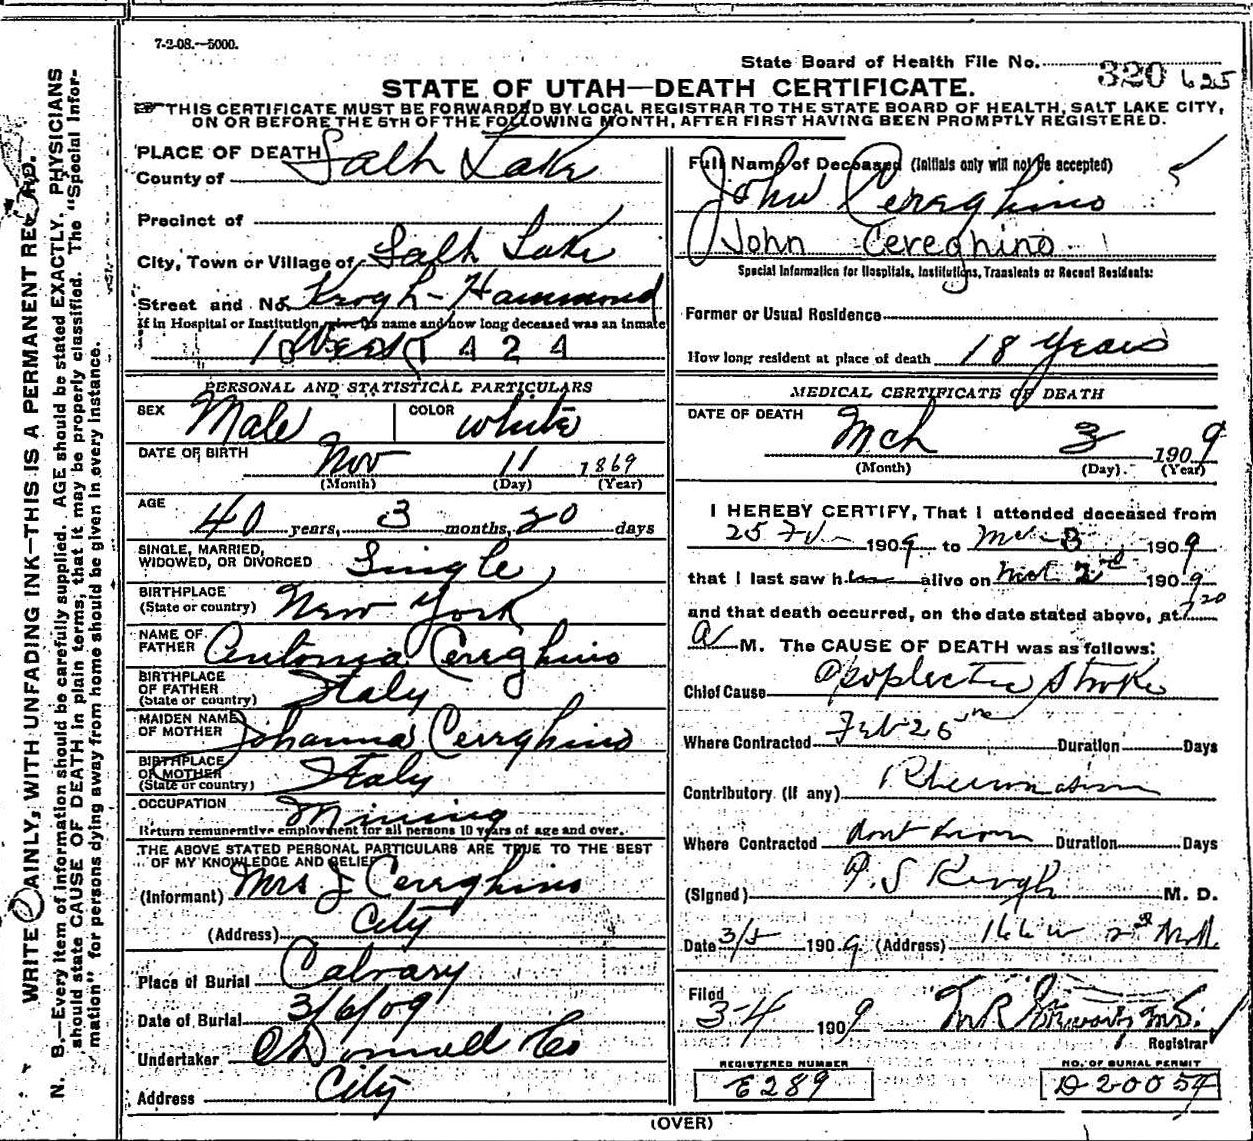 7-2-08.—5000.
State Board of Health File No. 320 625
STATE OF UTAH—DEATH CERTIFICATE.
THIS CERTIFICATE MUST BE FORWARDED BY LOCAL REGISTRAR TO THE STATE BOARD OF HEALTH, SALT LAKE CITY,
ON OR BEFORE THE 5TH OF THE FOLLOWING MONTH, AFTER FIRST HAVING BEEN PROMPTLY REGISTERED.
WRITE PLAINLY, WITH UNFADING INK—THIS IS A PERMANENT RECORD.
N. B.—Every item of information should be carefully supplied. AGE should be stated EXACTLY. PHYSICIANS
should state CAUSE OF DEATH in plain terms, that it may be properly classified. The "Special Infor-
mation" for persons dying away from home should be given in every instance.
PLACE OF DEATH
County of Salt Lake
Precinct of
City, Town or Village of Salt Lake
Street and No. Krogh-Hammond
If in Hospital or Institution, give its name and how long deceased was an inmate
424
PERSONAL AND STATISTICAL PARTICULARS
SEX Male COLOR White
DATE OF BIRTH Nov 11 1869
(Month) (Day) (Year)
AGE 40 years, 3 months, 20 days
SINGLE, MARRIED,
WIDOWED, OR DIVORCED Single
BIRTHPLACE
(State or country) New York
NAME OF
FATHER Antonia Cereghino
BIRTHPLACE
OF FATHER
(State or country) Italy
MAIDEN NAME
OF MOTHER Johanna Cereghino
BIRTHPLACE
OF MOTHER
(State or country) Italy
OCCUPATION Mining
Return remunerative employment for all persons 10 years of age and over.
THE ABOVE STATED PERSONAL PARTICULARS ARE TRUE TO THE BEST
OF MY KNOWLEDGE AND BELIEF
(Informant) Mrs J Cereghino
(Address) City
Place of Burial Calvary
Date of Burial 3/6/09
Undertaker O'Donnell Co
Address City
Full Name of Deceased (Initials only will not be accepted)
John Cereghino
John Cereghino
Special Information for Hospitals, Institutions, Transients or Recent Residents:
Former or Usual Residence
How long resident at place of death 18 Years
MEDICAL CERTIFICATE OF DEATH
DATE OF DEATH Mch 3 1909
(Month) (Day) (Year)
I HEREBY CERTIFY, That I attended deceased from
25 Feb 1909 to Mch 3 1909
that I last saw him alive on Mch 2nd 1909
and that death occurred, on the date stated above, at 7 20
a M. The CAUSE OF DEATH was as follows:
Chief Cause apoplectic Stroke
Where Contracted Feb 26 Duration Days
Contributory (if any) Rheumatism
Where Contracted dont know Duration Days
(Signed) M. D.
Date 3/5 1909 (Address) 166 W
Filed
3-4 1909
Registrar
REGISTERED NUMBER
E289
NO. OF BURIAL PERMIT
D-20054
(OVER)